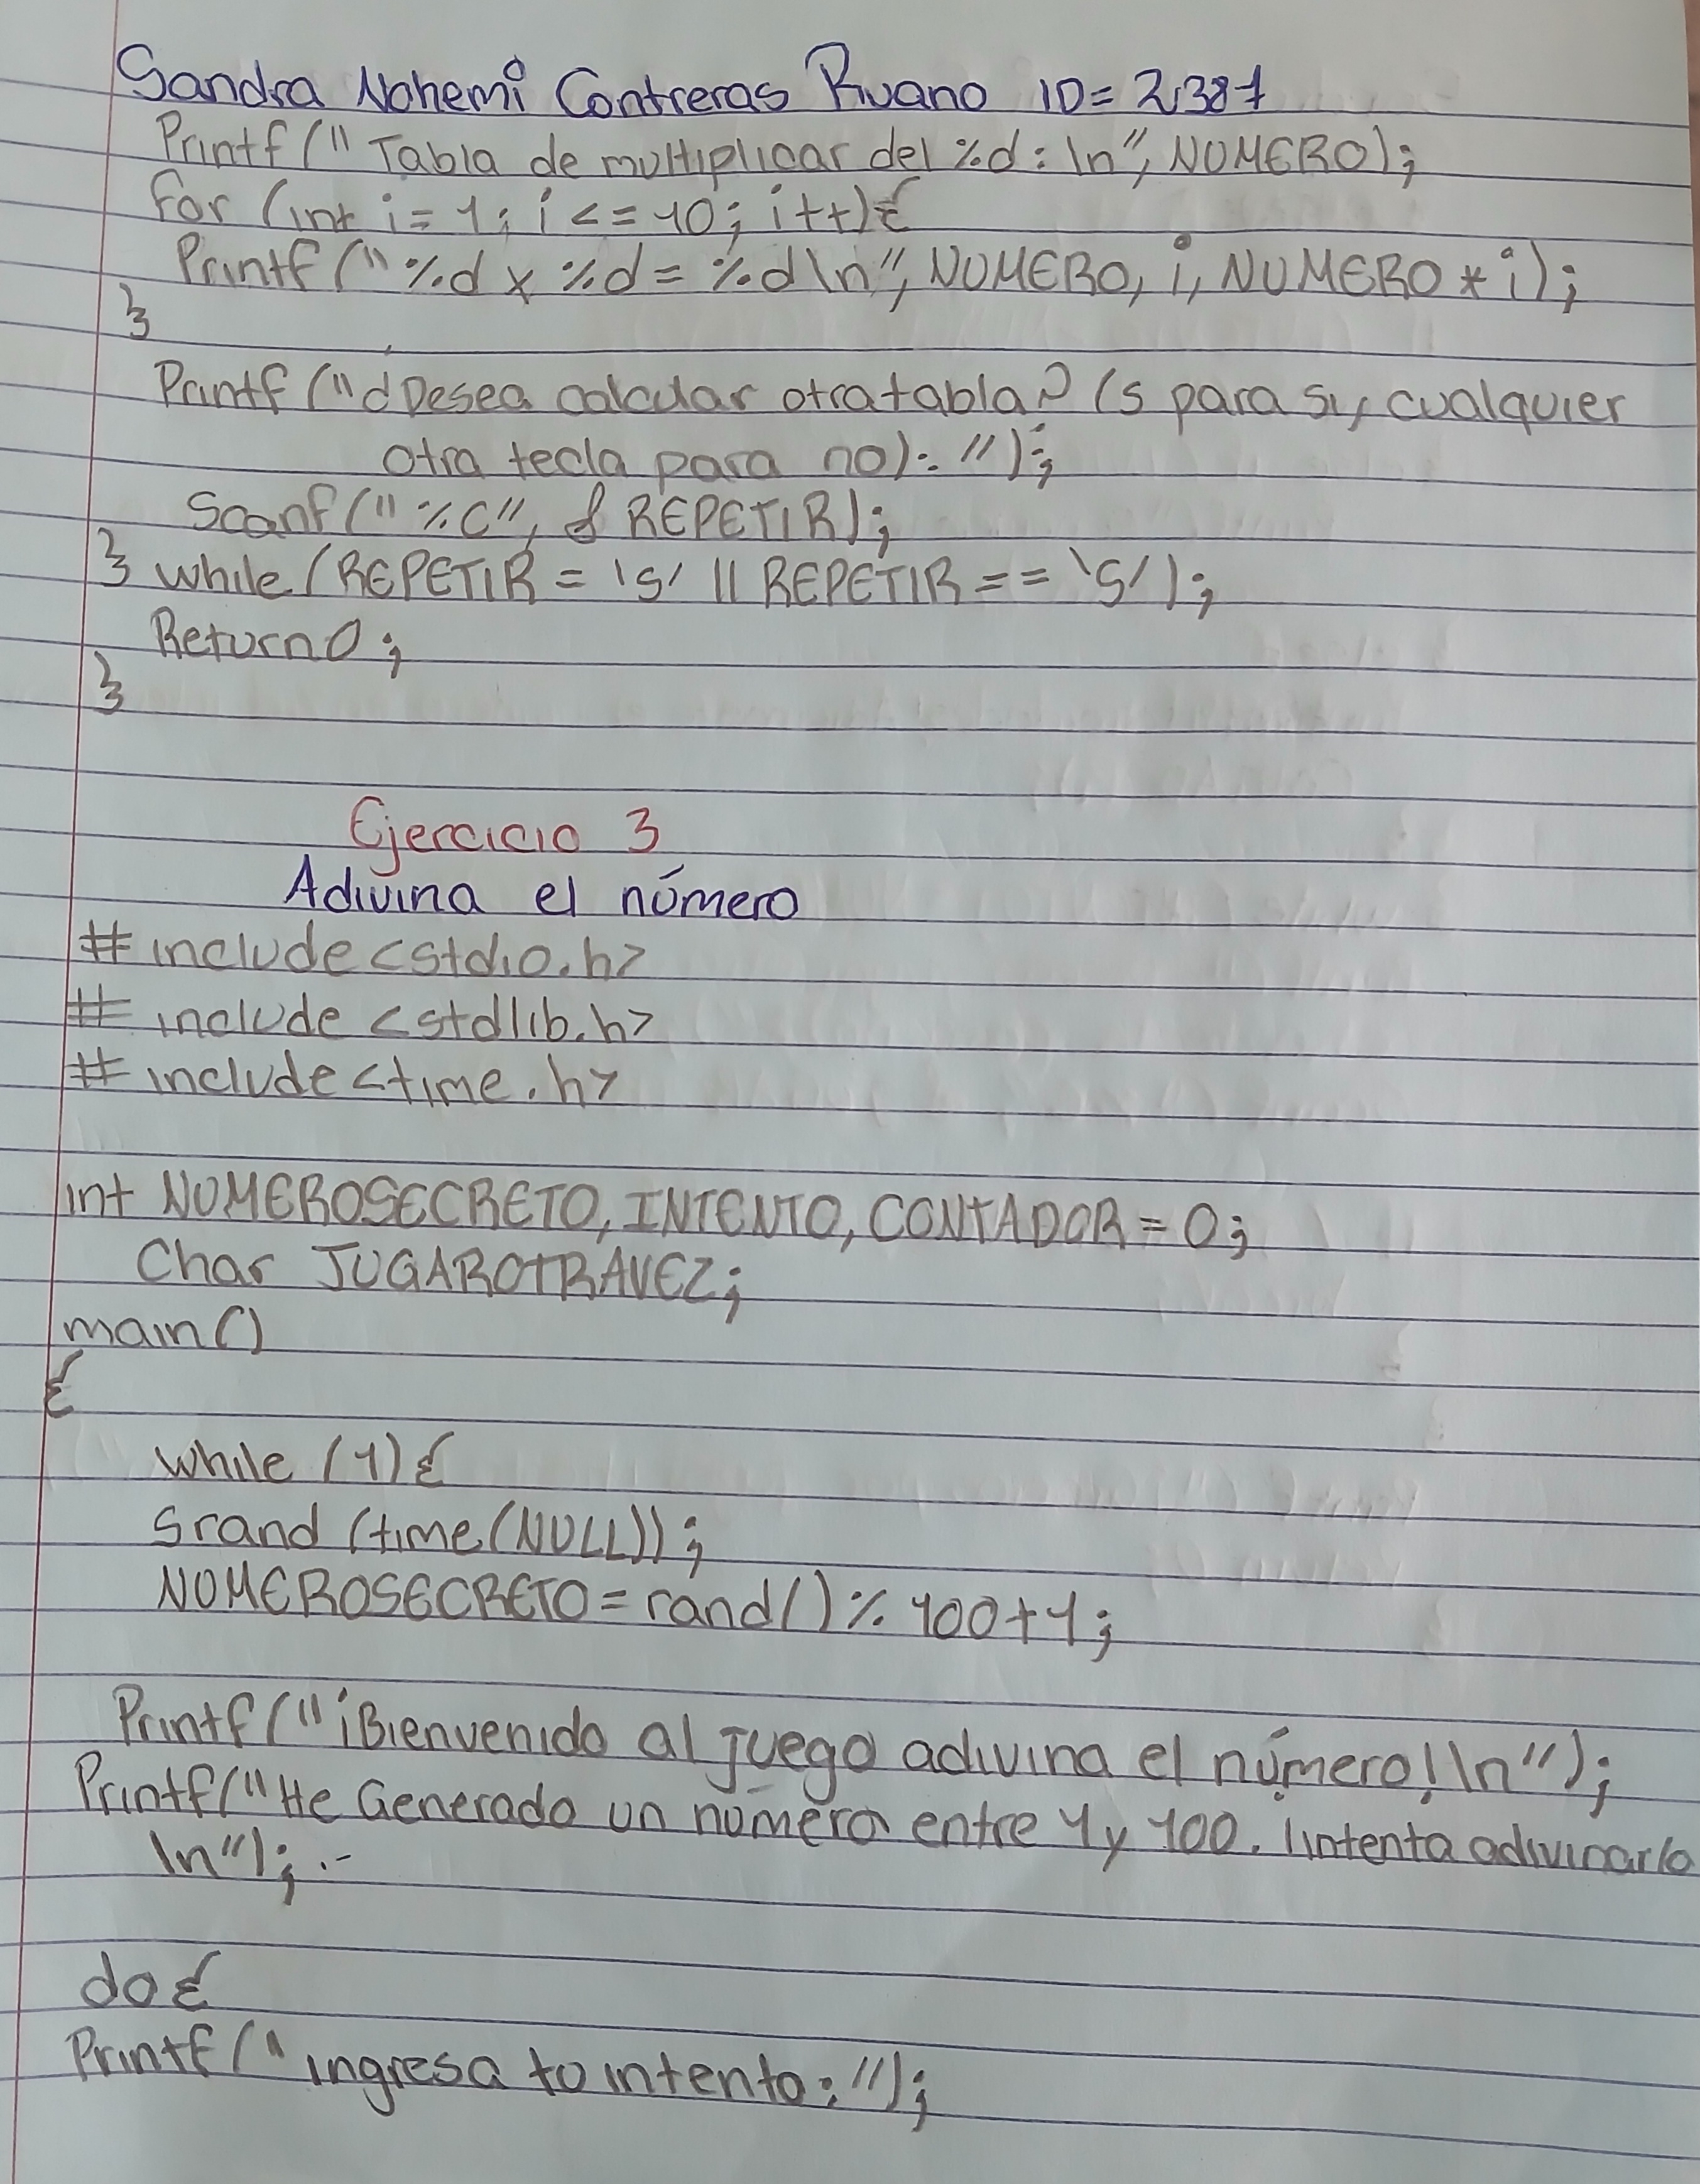 Sandra Nohemi Contreras Ruano ID= 2,387
Printf (" Tabla de multiplicar del %d: \n", NUMERO);
For (int i = 1; i <= 10; i++){
Printf (" %d x %d = %d \n", NUMERO, i, NUMERO * i);
}
Printf ("¿Desea calcular otra tabla? (s para si, cualquier
otra tecla para no): ");
Scanf (" %c", & REPETIR);
} while (REPETIR = 's' || REPETIR == 'S');
Return 0;
}
Ejercicio 3
Adivina el número
# include <stdio.h>
# include <stdlib.h>
# include <time.h>
int NUMEROSECRETO, INTENTO, CONTADOR = 0;
Char JUGAROTRAVEZ;
main()
{
while (1){
Srand (time(NULL));
NUMEROSECRETO = rand() % 100+1;
Printf ("¡Bienvenido al juego adivina el número!\n");
Printf("He Generado un número entre 1 y 100. Intenta adivinarlo
\n");
do{
Printf (" ingresa tu intento: ");